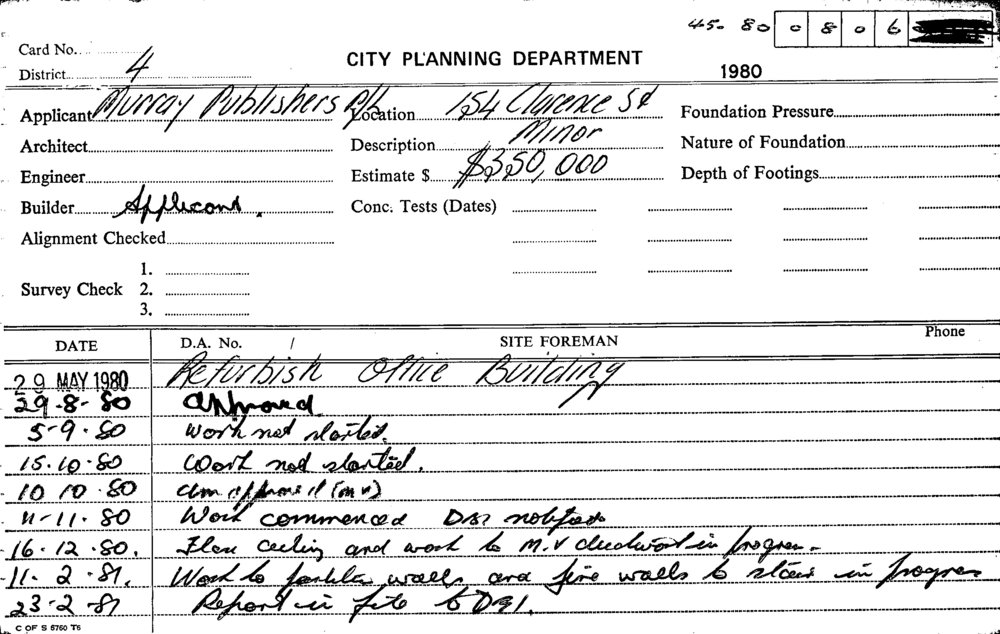 45- 80 0 8 0 6
Card No.
CITY PLANNING DEPARTMENT
District 4
1980
Applicant Murray Publishers P/L Location 154 Clarence St Foundation Pressure
Architect Description Minor Nature of Foundation
Engineer Estimate $ $350,000 Depth of Footings
Builder Applicant. Conc. Tests (Dates)
Alignment Checked
1.
Survey Check 2.
3.
DATE D.A. No. / SITE FOREMAN Phone
29 MAY 1980 Refurbish Office Building
29-8-80 approved
5-9-80 Work not started.
15.10-80 Work not started.
10 10-80
11-11-80 Work commenced notified
16.12.80. ceiling and work to M.V ductwork in progress.
11. 2.81. Work to walls and fire walls to stairs in progress
23-2-81 Report in file to
C OF S 6760 T6